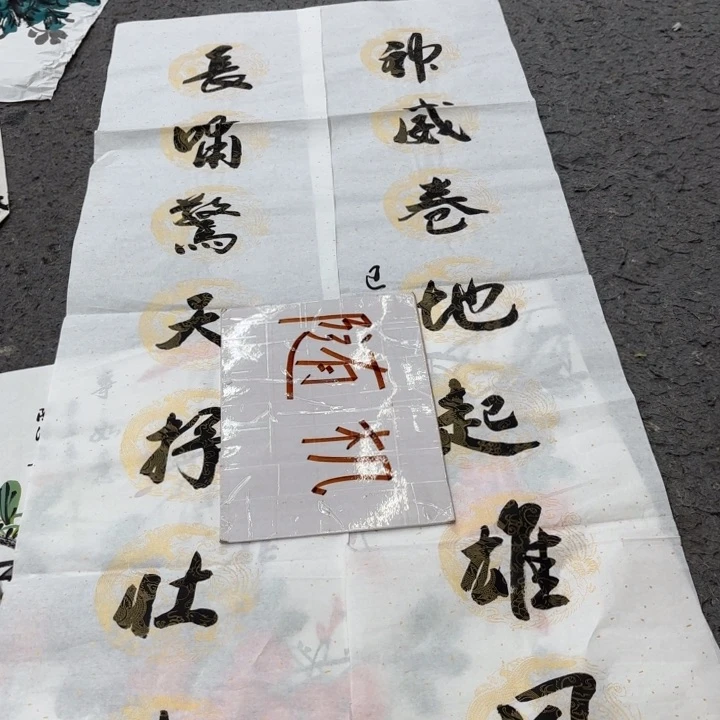 神威卷地起雄
長啸驚天抒壮
已
随机